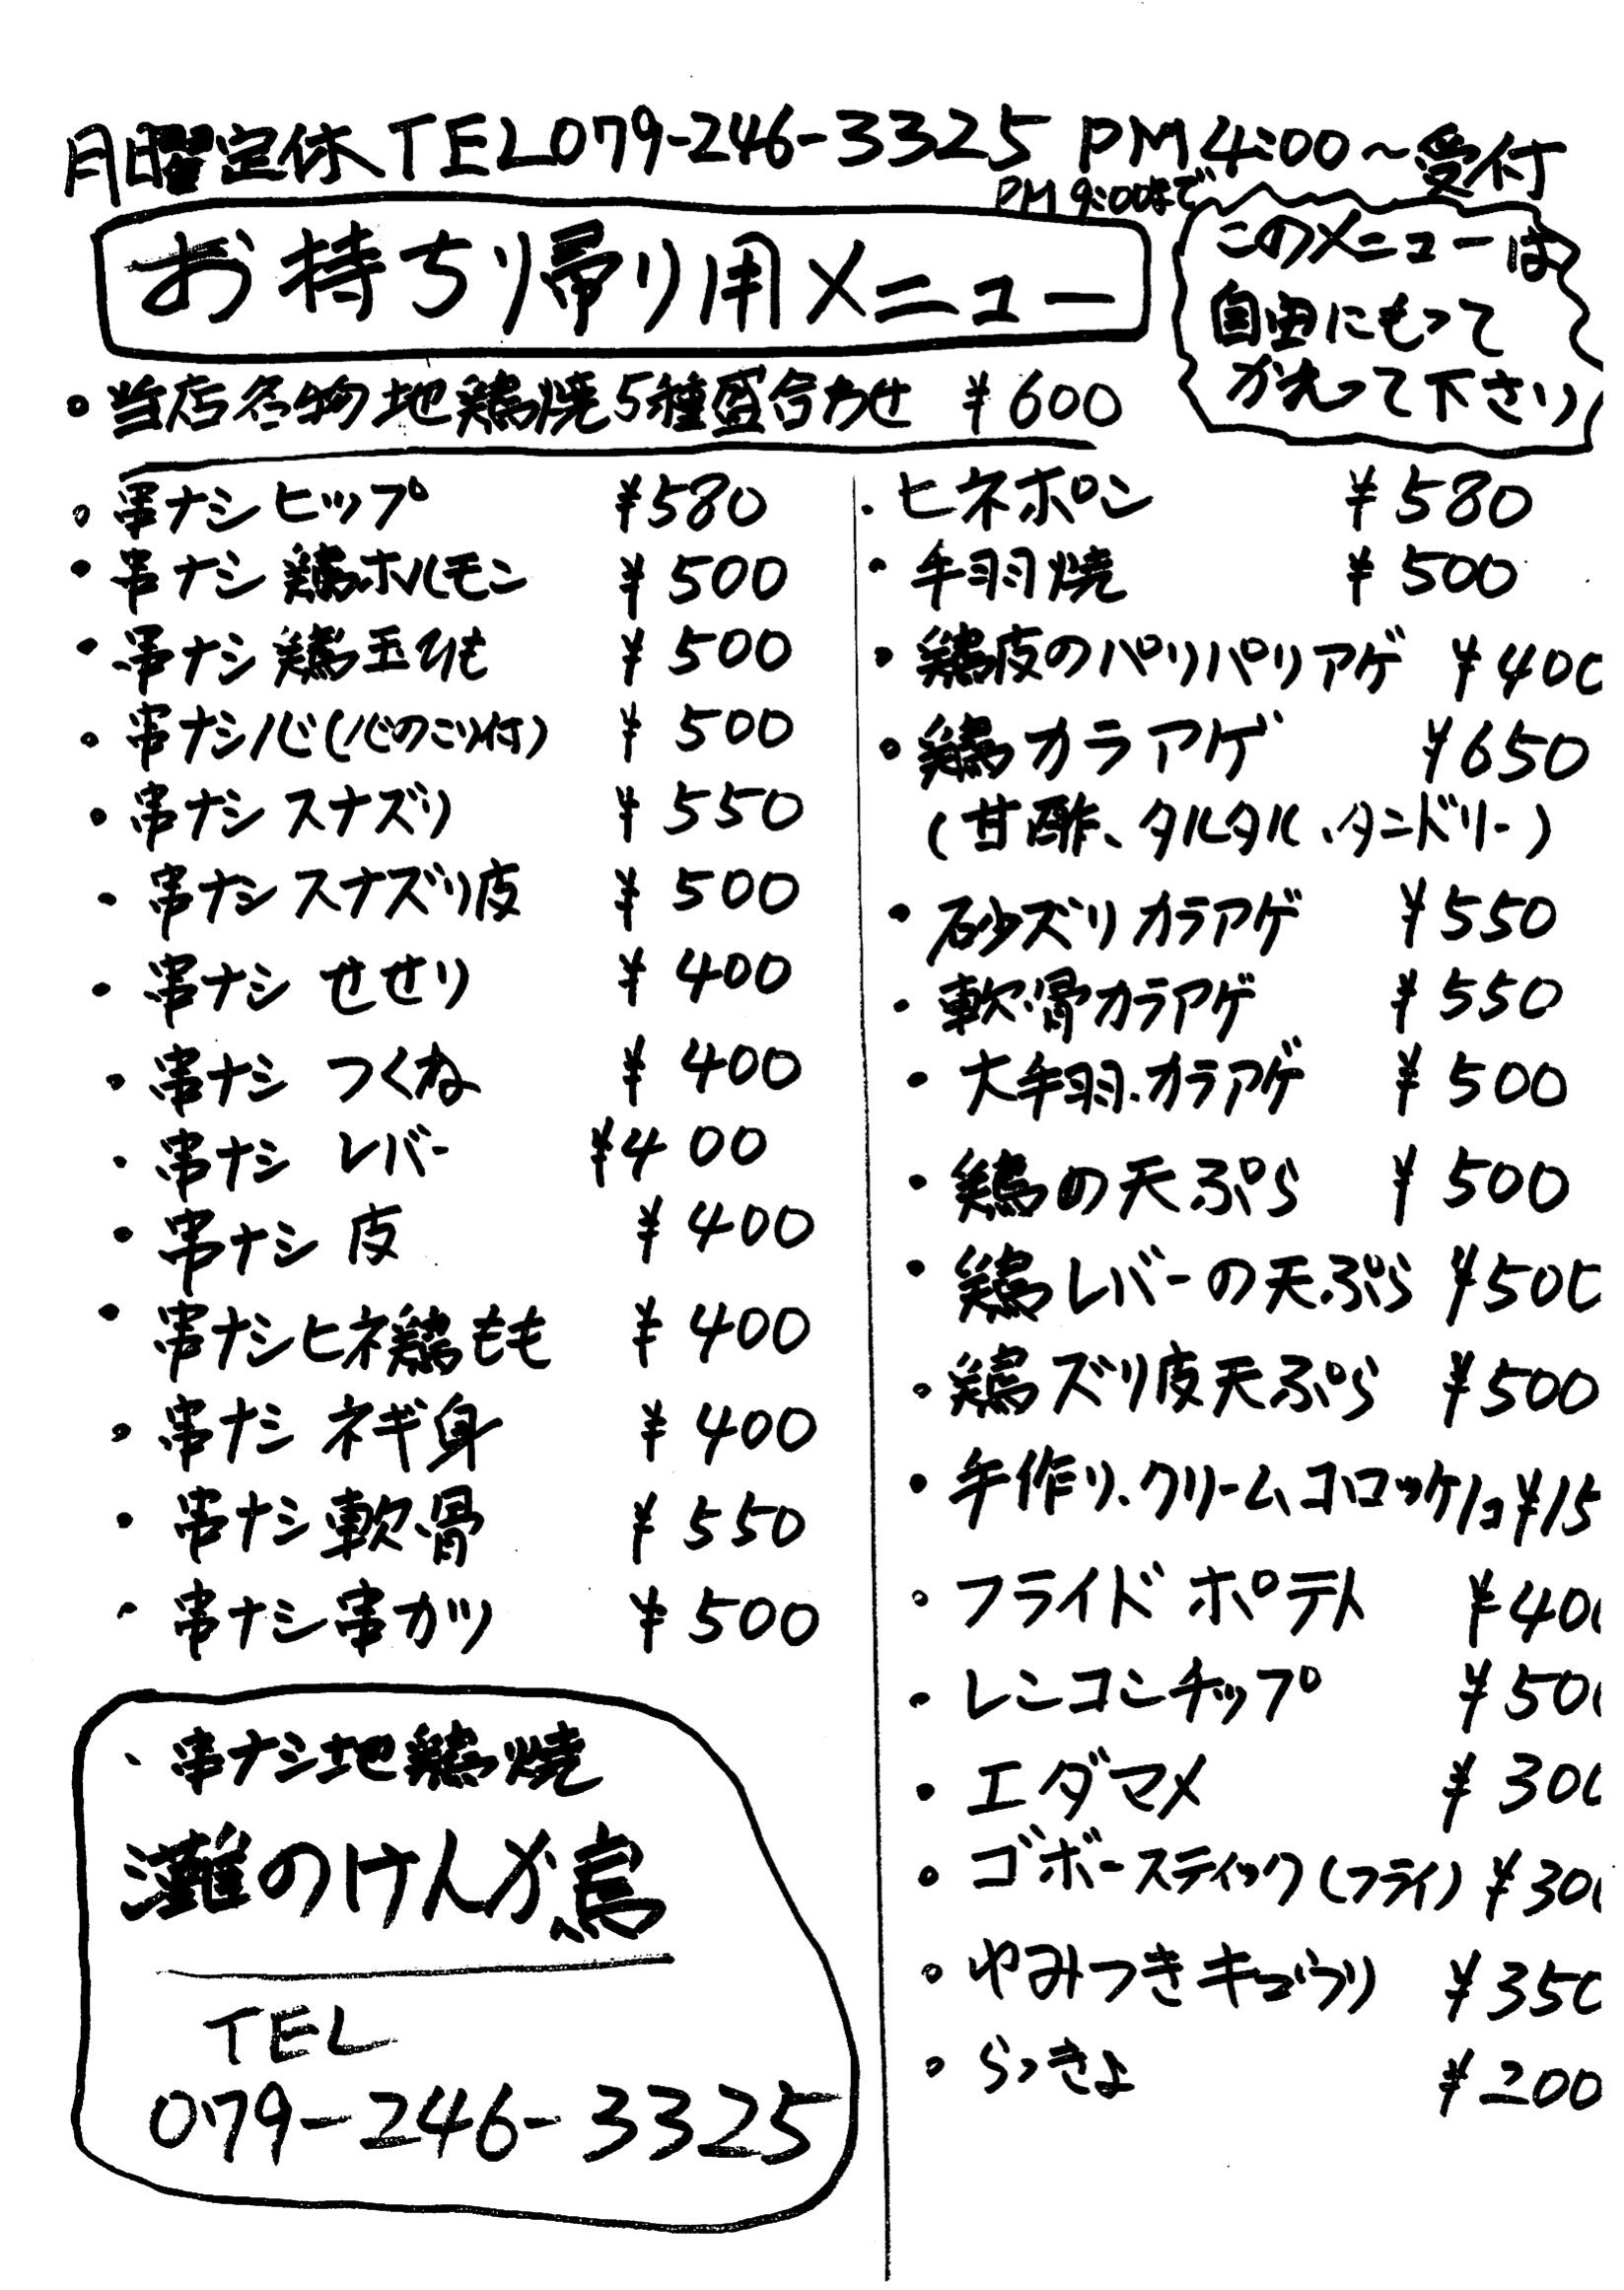 月曜定休 TEL079-246-3325 PM4:00〜受付
PM9:00まで
お持ち帰り用メニュー
このメニューは
自由にもって
かえって下さい
・当店名物地鶏焼5種盛合わせ ¥600
・串ナシヒップ ¥580
・串ナシ 鶏ホルモン ¥500
・串ナシ 鶏玉ひも ¥500
・串ナシ心(心のこり付) ¥500
・串ナシ スナズリ ¥550
・串ナシ スナズリ皮 ¥500
・串ナシ せせり ¥400
・串ナシ つくね ¥400
・串ナシ レバー ¥400
・串ナシ 皮 ¥400
・串ナシヒネ鶏もも ¥400
・串ナシ ネギ身 ¥400
・串ナシ 軟骨 ¥550
・串ナシ串カツ ¥500
、串ナシ地鶏焼
灘のけんか鳥
TEL
079-246-3325
・ヒネポン ¥580
・手羽焼 ¥500
・鶏皮のパリパリアゲ ¥400
・鶏カラアゲ ¥650
(甘酢、タルタル、タンドリー)
・砂ズリカラアゲ ¥550
・軟骨カラアゲ ¥550
・大手羽、カラアゲ ¥500
・鶏の天ぷら ¥500
・鶏レバーの天ぷら ¥500
・鶏ズリ皮天ぷら ¥500
・手作り、クリームコロッケ1コ¥15
・フライドポテト ¥400
・レンコンチップ ¥500
・エダマメ ¥300
・ゴボースティック(フライ) ¥300
・やみつきキュウリ ¥350
・らっきょ ¥200